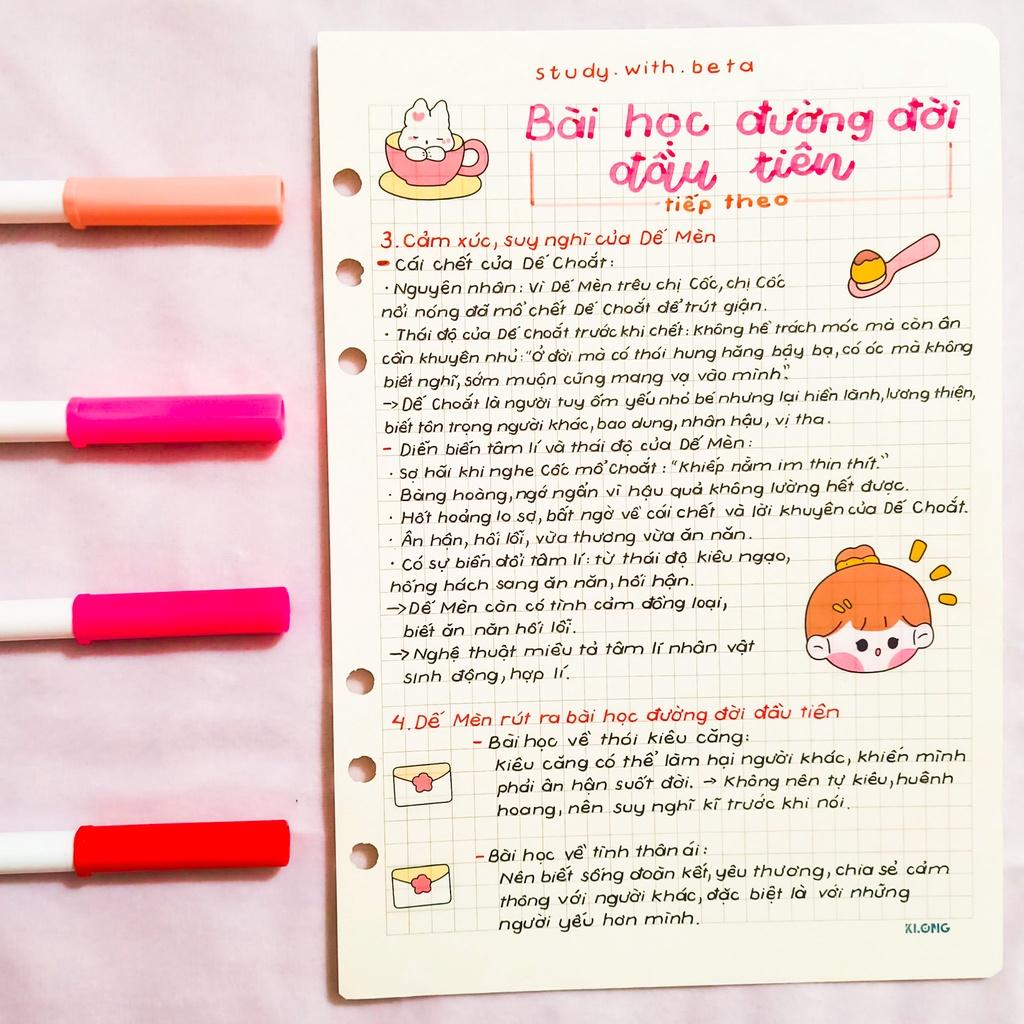 study.with.beta
Bài học đường đời
đầu tiên
tiếp theo
3. Cảm xúc, suy nghĩ của Dế Mèn
- Cái chết của Dế Choắt:
· Nguyên nhân: vì Dế Mèn trêu chị Cốc, chị Cốc
nổi nóng đã mổ chết Dế Choắt để trút giận.
· Thái độ của Dế Choắt trước khi chết: không hề trách móc mà còn ân
cần khuyên nhủ: "Ở đời mà có thói hung hăng bậy bạ, có óc mà không
biết nghĩ, sớm muộn cũng mang vạ vào mình".
-> Dế Choắt là người tuy ốm yếu nhỏ bé nhưng lại hiền lành, lương thiện,
biết tôn trọng người khác, bao dung, nhân hậu, vị tha.
- Diễn biến tâm lí và thái độ của Dế Mèn:
· Sợ hãi khi nghe Cốc mổ Choắt: "Khiếp nằm im thin thít."
· Bàng hoàng, ngớ ngẩn vì hậu quả không lường hết được.
· Hốt hoảng lo sợ, bất ngờ về cái chết và lời khuyên của Dế Choắt.
· Ân hận, hối lỗi, vừa thương vừa ăn năn.
· Có sự biến đổi tâm lí: từ thái độ kiêu ngạo,
hống hách sang ăn năn, hối hận.
-> Dế Mèn còn có tình cảm đồng loại,
biết ăn năn hối lỗi.
-> Nghệ thuật miêu tả tâm lí nhân vật
sinh động, hợp lí.
4. Dế Mèn rút ra bài học đường đời đầu tiên
- Bài học về thói kiêu căng:
Kiêu căng có thể làm hại người khác, khiến mình
phải ân hận suốt đời. -> Không nên tự kiêu, huênh
hoang, nên suy nghĩ kĩ trước khi nói.
- Bài học về tình thân ái:
Nên biết sống đoàn kết, yêu thương, chia sẻ cảm
thông với người khác, đặc biệt là với những
người yếu hơn mình.
KLONG